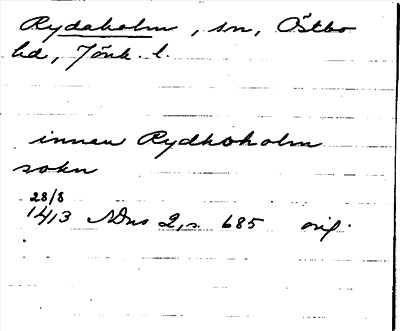 Rydaholm, sn, Östbo
hd, Jönk. l.
innan Rydhoholm
sokn
28/8
1413 SDns 2, s. 685 orig.